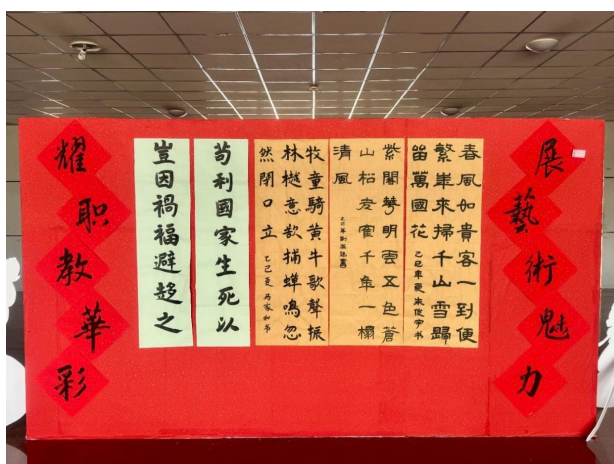 展藝術魅力
春風如貴客一到便
繁華來掃千山雪歸
留萬國花 乙巳年夏 朱俊宇书
紫閣明雲五色蒼
山松老隺千年一榻
清風 乙巳年
牧童騎黄牛歌聲振
林樾意欲捕蟬鳴忽
然閉口立 乙巳夏 馬家和书
苟利國家生死以
豈因禍福避趨之
耀职教華彩